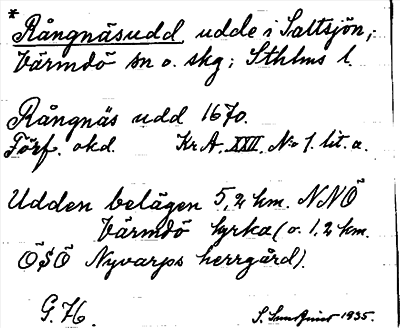 *
Rångnäsudd, udde i Saltsjön,;
Värmdö sn o. skg; Sthlms l.
Rångnäs udd 1670.
Förf. okd. Kr.A. XXII. No 1. lit. a.
Udden belägen 5,2 km. NNÖ
Värmdö kyrka (o. 1,2 km.
ÖSÖ Nyvarps herrgård).
G. H. S. 1935.